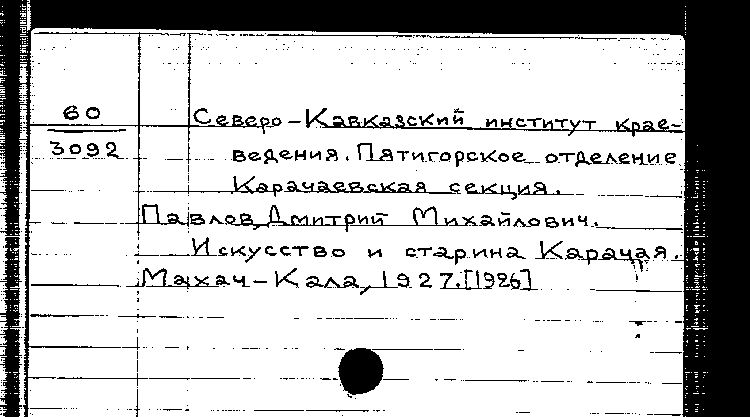 60
3092
Северо-Кавказский институт крае-
ведения. Пятигорское отделение
Карачаевская секция.
Павлов, Дмитрий Михайлович.
Искусство и старина Карачая.
Махач-Кала, 1927. [1926]